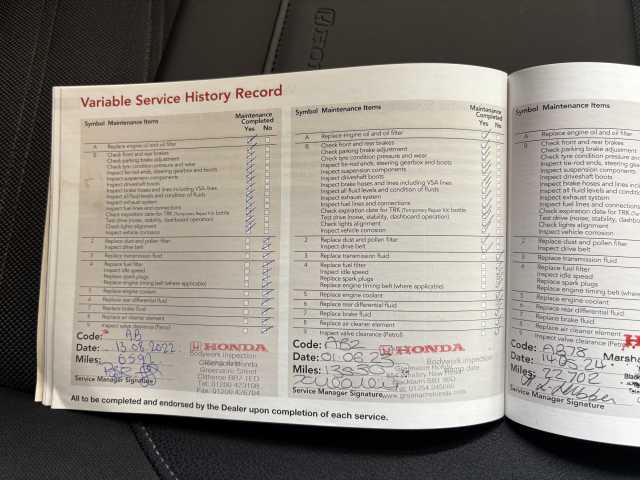 Variable Service History Record
Symbol Maintenance Items Maintenance Completed Yes No
A Replace engine oil and oil filter
B Check front and rear brakes
Check parking brake adjustment
Check tyre condition pressure and wear
Inspect tie-rod ends, steering gearbox and boots
Inspect suspension components
Inspect driveshaft boots
Inspect brake hoses and lines including VSA lines
Inspect all fluid levels and condition of fluids
Inspect exhaust system
Inspect fuel lines and connections
Check expiration date for TRK (Temporary Repair Kit) bottle
Test drive (noise, stability, dashboard operation)
Check lights alignment
Inspect vehicle corrosion
2 Replace dust and pollen filter
Inspect drive belt
3 Replace transmission fluid
4 Replace fuel filter
Inspect idle speed
Replace spark plugs
Replace engine timing belt (where applicable)
5 Replace engine coolant
6 Replace rear differential fluid
7 Replace brake fluid
8 Replace air cleaner element
9 Inspect valve clearance (Petrol)
Code: AB
Date: 13.08.2022
Miles: 6597
Service Manager Signature
HONDA
Bodywork Inspection
Honda
Greenacre Street
Clitheroe BB7 1ED
Tel: 01200 423108
Fax: 01200 426704
Symbol Maintenance Items Maintenance Completed Yes No
A Replace engine oil and oil filter
B Check front and rear brakes
Check parking brake adjustment
Check tyre condition pressure and wear
Inspect tie-rod ends, steering gearbox and boots
Inspect suspension components
Inspect driveshaft boots
Inspect brake hoses and lines including VSA lines
Inspect all fluid levels and condition of fluids
Inspect exhaust system
Inspect fuel lines and connections
Check expiration date for TRK (Temporary Repair Kit) bottle
Test drive (noise, stability, dashboard operation)
Check lights alignment
Inspect vehicle corrosion
2 Replace dust and pollen filter
Inspect drive belt
3 Replace transmission fluid
4 Replace fuel filter
Inspect idle speed
Replace spark plugs
Replace engine timing belt (where applicable)
5 Replace engine coolant
6 Replace rear differential fluid
7 Replace brake fluid
8 Replace air cleaner element
9 Inspect valve clearance (Petrol)
Code: AB2
Date: 01.06.23
Miles:
Service Manager Signature
HONDA
Bodywork Inspection
date
All to be completed and endorsed by the Dealer upon completion of each service.
Symbol Maintenance Items
A Replace engine oil and oil filter
B Check front and rear brakes
Check parking brake adjustment
Check tyre condition pressure and
Inspect tie-rod ends, steering gearbox
Inspect suspension components
Inspect driveshaft boots
Inspect brake hoses and lines inclu
Inspect all fluid levels and condition
Inspect exhaust system
Inspect fuel lines and connections
Check expiration date for TRK
Test drive (noise, stability, dashbo
Check lights alignment
Inspect vehicle corrosion
2 Replace dust and pollen filter
Inspect drive belt
3 Replace transmission fluid
4 Replace fuel filter
Inspect idle speed
Replace spark plugs
Replace engine timing belt (where
5 Replace engine coolant
6 Replace rear differential fluid
7 Replace brake fluid
8 Replace air cleaner element
9 Inspect valve clearance (Petrol)
Code: AB78
Date: 14.05.24
Miles: 22702
Service Manager Signature
Marsha
Black